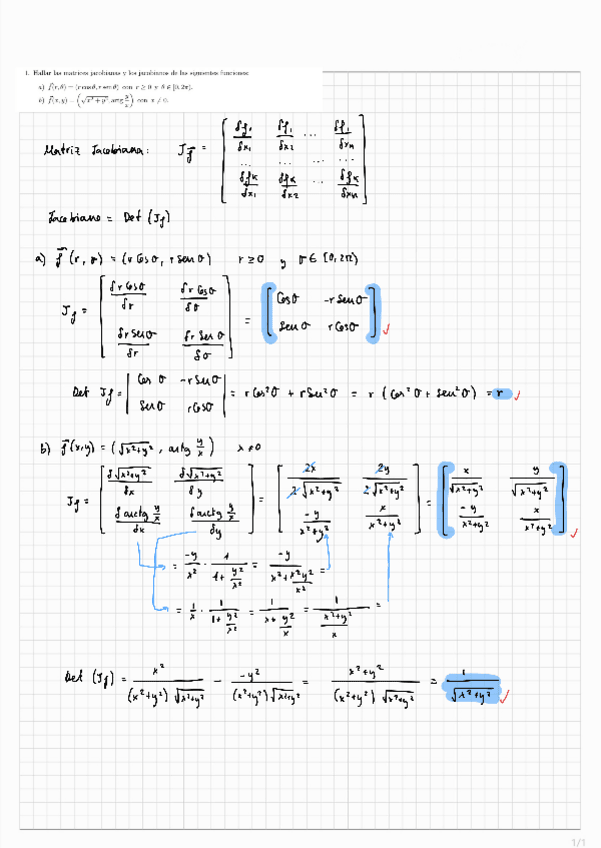 1. Hallar las matrices jacobianas y los jacobianos de las siguientes funciones:
a) f⃗(r, θ) = (r cos θ, r sen θ) con r ≥ 0 y θ ∈ [0, 2π).
b) f⃗(x, y) = (√(x² + y²), arctg y/x) con x ≠ 0.
Matriz Jacobiana: J_f⃗ = [ δf₁/δx₁ δf₁/δx₂ ... δf₁/δxₙ
... ... ... ...
δfₖ/δx₁ δfₖ/δx₂ ... δfₖ/δxₙ ]
Jacobiano = Det (Jf)
a) f⃗(r, θ) = (r Cos θ, r Sen θ) r ≥ 0 y θ ∈ [0, 2π)
J_f = [ δ r Cos θ/δr δ r Cos θ/δθ = [ Cos θ -r Sen θ
δ r Sen θ/δr δ r Sen θ/δθ ] Sen θ r Cos θ ] ✓
Det J_f = | Cos θ -r Sen θ | = r Cos² θ + r Sen² θ = r (Cos² θ + Sen² θ) = r ✓
| Sen θ r Cos θ |
b) f⃗(x,y) = (√(x²+y²), arctg y/x) x ≠ 0
J_f = [ δ√(x²+y²)/δx δ√(x²+y²)/δy = [ 2x/2√(x²+y²) 2y/2√(x²+y²) = [ x/√(x²+y²) y/√(x²+y²)
δ arctg y/x/δx δ arctg y/x/δy ] -y/x²+y² x/x²+y² ] -y/x²+y² x/x²+y² ] ✓
= -y/x² · 1/(1+y²/x²) = -y/(x²+x²y²/x²) =
= 1/x · 1/(1+y²/x²) = 1/(x+y²/x) = 1/((x²+y²)/x) =
Det (Jf) = x²/((x²+y²)√(x²+y²)) - -y²/((x²+y²)√(x²+y²)) = x²+y²/((x²+y²)√(x²+y²)) = 1/√(x²+y²) ✓
1/1